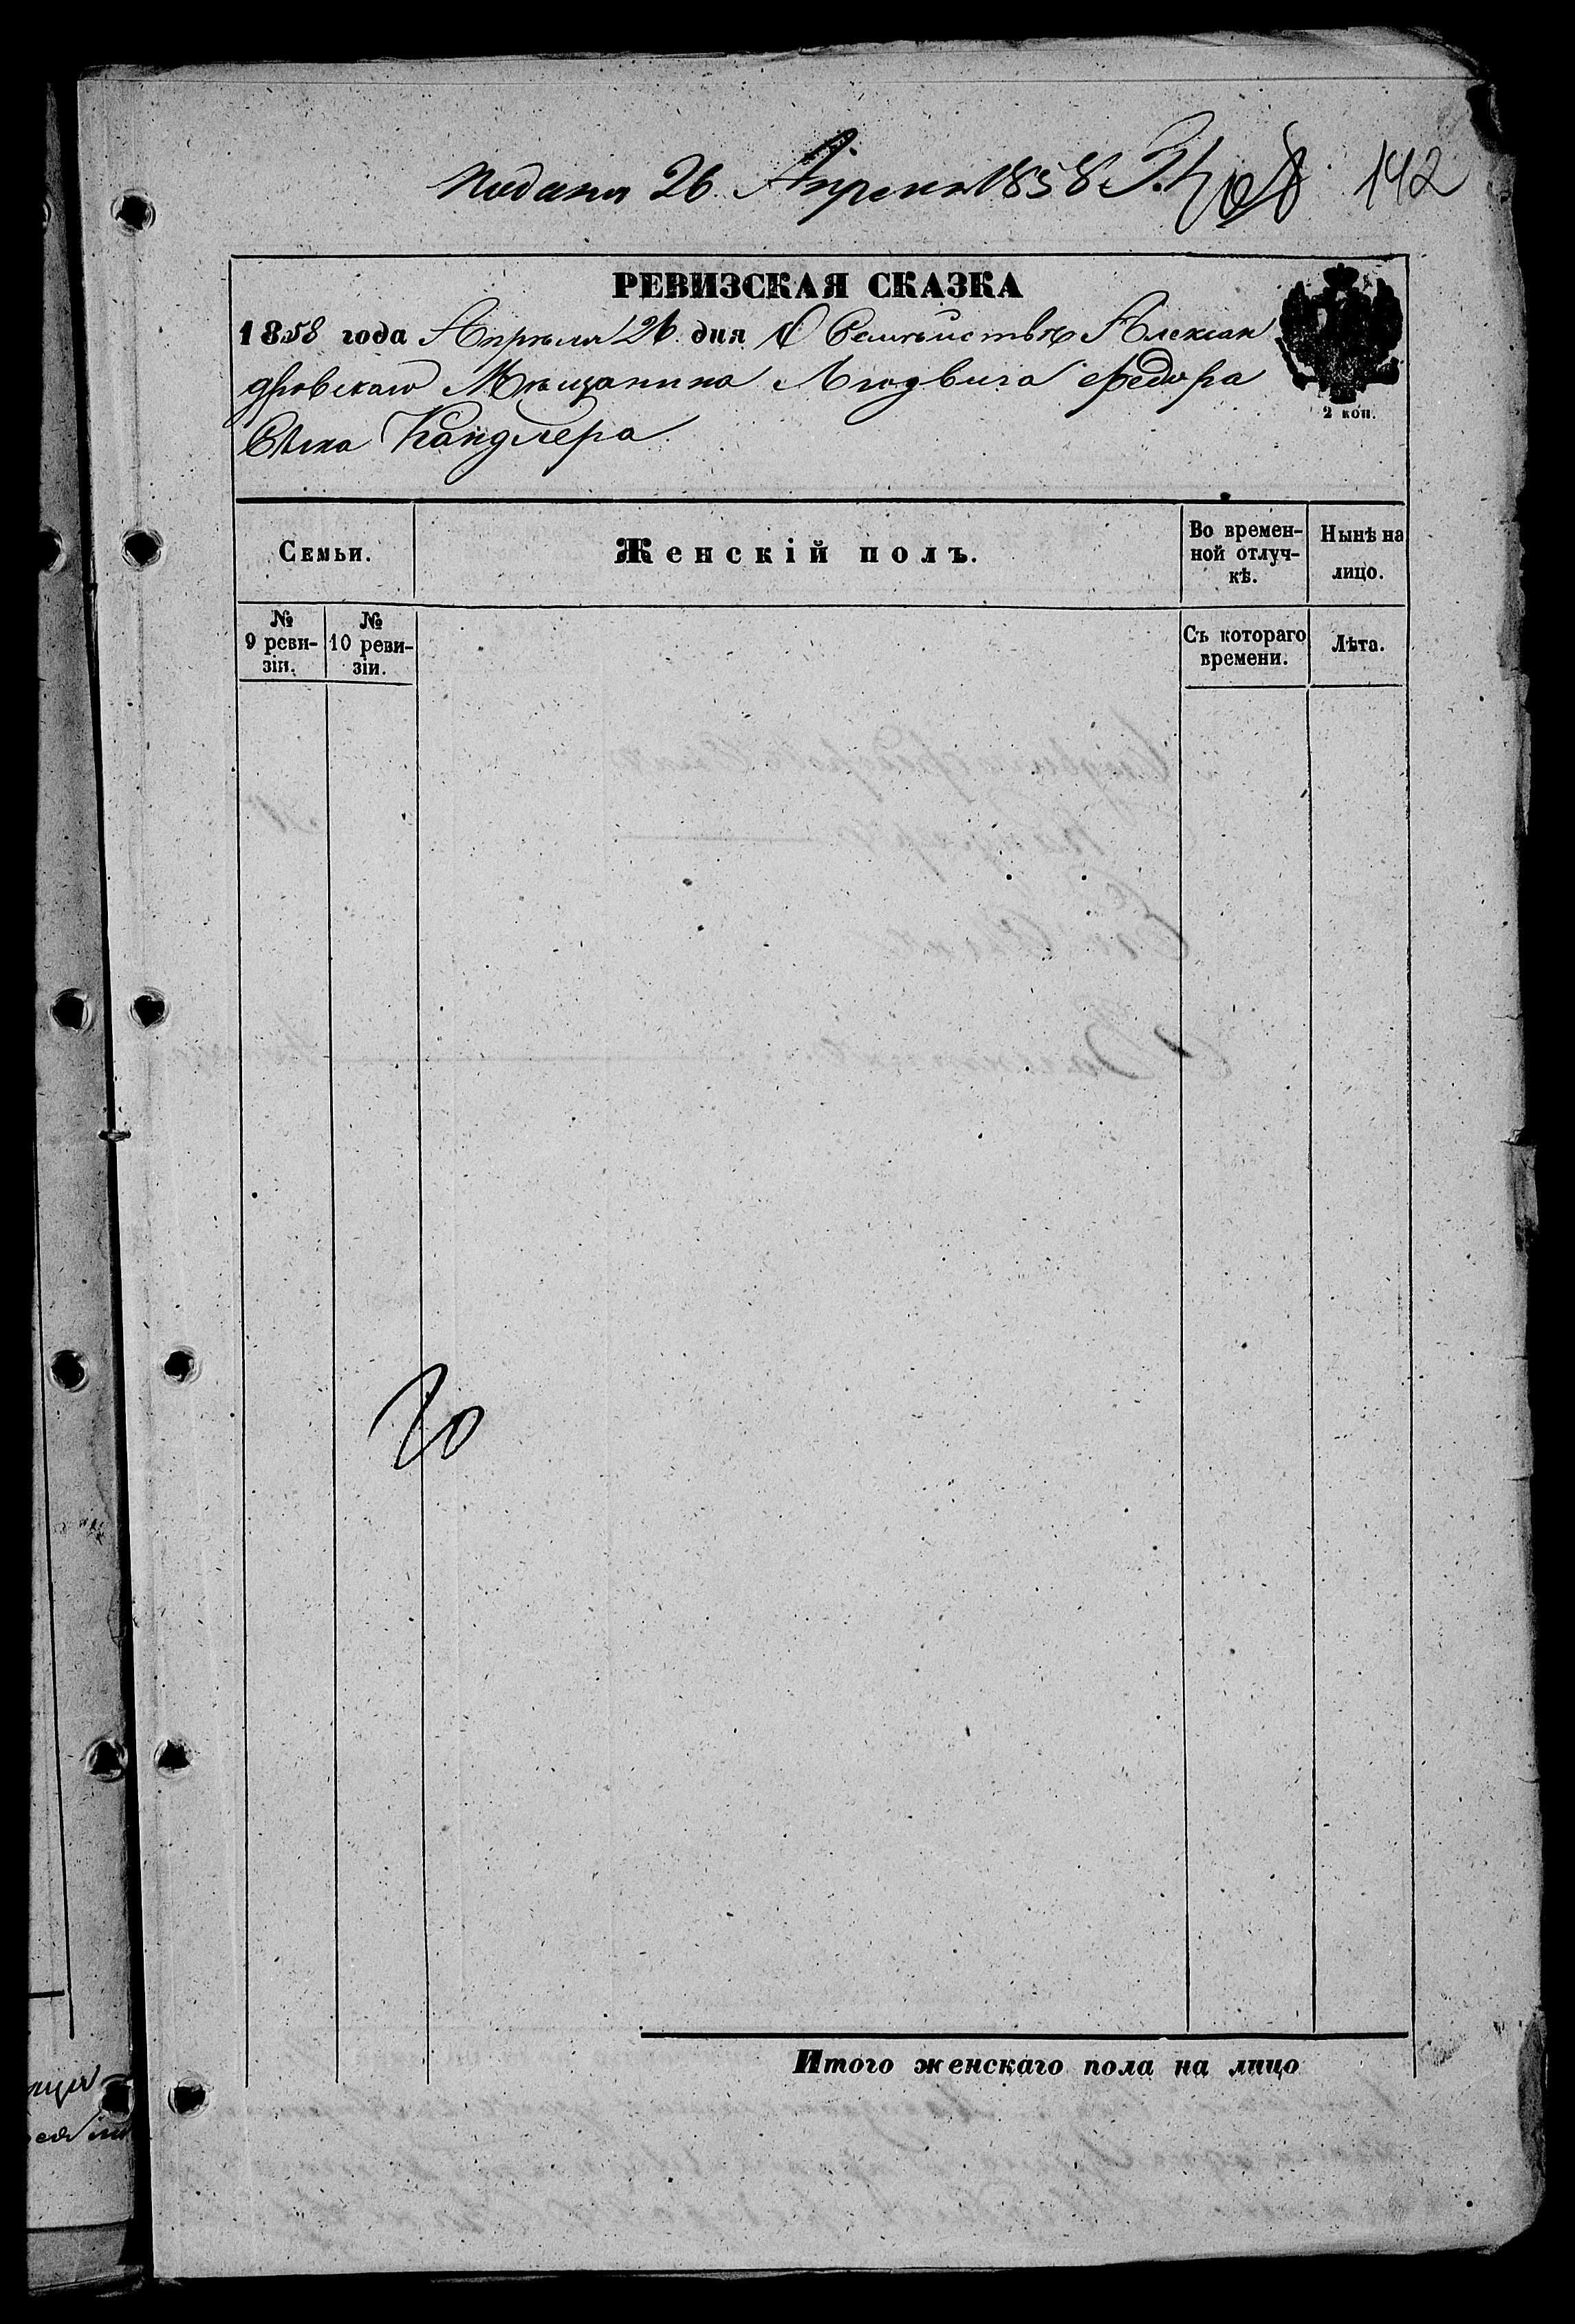 Подана 26 Апреля 1858 г. 142
РЕВИЗСКАЯ СКАЗКА
1858 года Апрѣля 26 дня О Семѣйствѣ Алексан
дровскаго Мѣщанина Людвига Федора
Сына Кандлера.
2 коп.
Семьи.
Женскій полъ.
Во времен-
ной отлуч-
кѣ.
Нынѣ на
лицо.
№
9 реви-
зіи.
№
10 реви-
зіи.
Съ котораго
времени.
Лѣта.
20
Итого женскаго пола на лицо